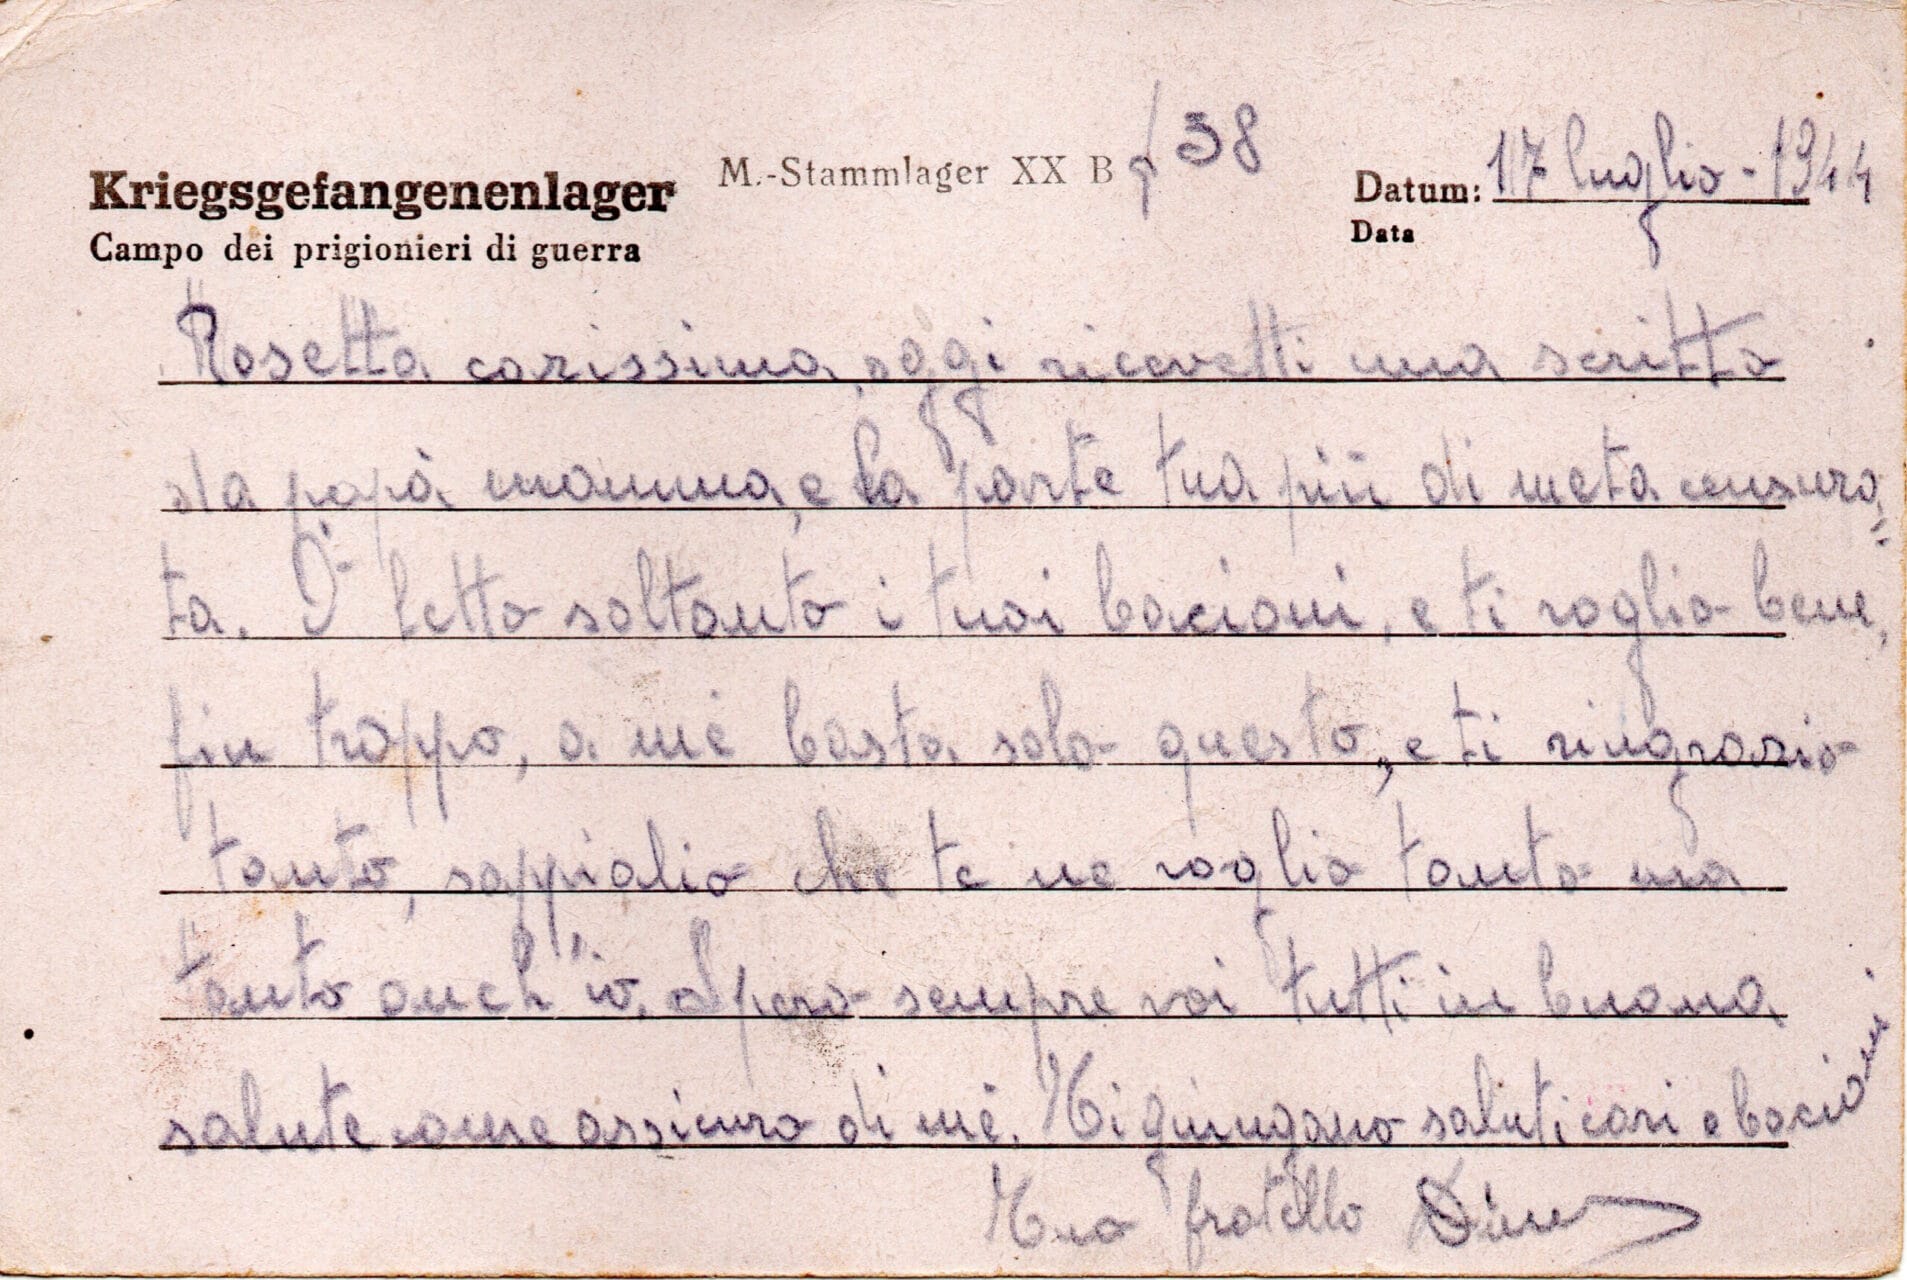 Kriegsgefangenenlager M.-Stammlager XX B 38 Datum: 17 luglio - 1944
Campo dei prigionieri di guerra Data
Rosetta carissima, oggi ricevetti una scritto
da papà mamma, e la parte tua più di meta censura=
ta. Ò letto soltanto i tuoi bacioni, e ti voglio bene,
fin troppo, a me basta solo questo, e ti ringrazio
tanto, sappialio che te ne voglio tanto ma
tanto anch'io. Spero sempre voi tutti in buona
salute come assicuro di me. Vi giungano saluti cari e bacioni
Tuo fratello